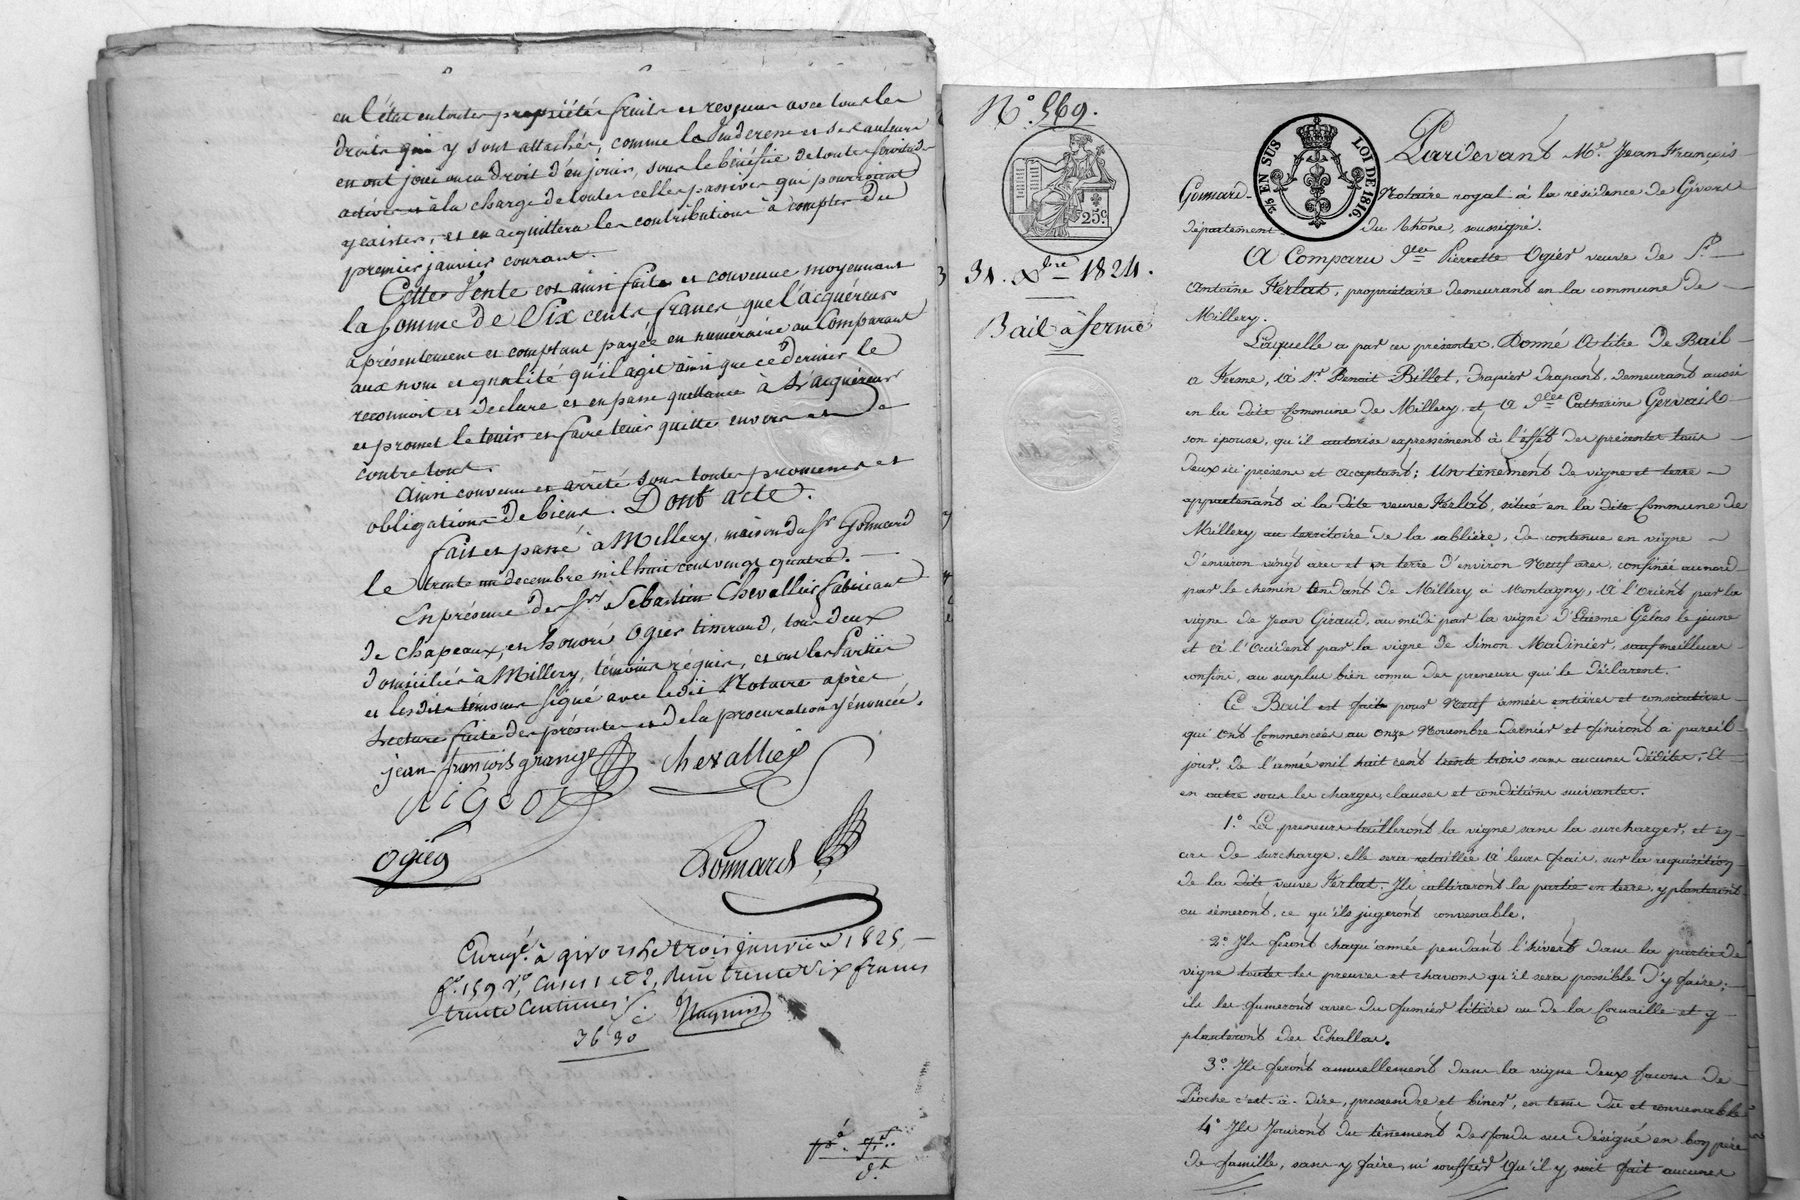 en l'état en toutes propriétés fruits et revenus avec tous les
droits qui y sont attachés, comme la Venderesse et ses auteurs
en ont joui ou eu droit d'en jouir, sous le bénéfice de toutes servitudes
actives et à la charge de toutes celles passives qui pourroient
y exister, et en acquittera les contributions à compter du
premier janvier courant.
Cette Vente est ainsi faite et convenue moyennant
la somme de Six cents francs que l'acquéreur
a présentement et comptant payée en numéraire au Comparant
aux nom et qualité qu'il agit ainsi que ce dernier le
reconnoit et declare et en passe quittance à l'acquéreur
et promet le tenir et faire tenir quitte envers et
contre tous.
Ainsi convenu et arrêté sous toutes promesses et
obligations de biens. Dont acte.
fait et passé à Millery, maison du Sr Gonnard
le trente un decembre mil huit cent vingt quatre.
En présence des Srs Sébastien Chevallier fabricant
de chapeaux, et honoré Ogier tisserand, tous deux
domiciliés à Millery, témoins réquis, et ont les Parties
et les dits témoins signé avec ledit Notaire après
Lecture faite des présentes et de la procuration y énoncée.
jean françois grange Chevallier
Ogier
Gonnard
Enregé. à givors le trois janvier 1825,
fo. 159 Vo, Cases 1 et 2, Reçu trente six francs
trente centimes
36 30
No. 569.
25c.
31. Xbre 1824.
Bail à ferme
EN SUS LOI DE 1816.
Pardevant Me. Jean François
Gonnard Notaire royal à la résidence de Givors
département du Rhône, soussigné.
A Comparu Dlle Pierrette Ogier veuve de Sr.
Antoine Ferlat, propriétaire demeurant en la commune de
Millery.
Laquelle a par ces présentes, Donné A titre de Bail
a Ferme, à Sr. Benoit Billet, drapier drapant, demeurant aussi
en la dite Commune de Millery et A Dlle Catherine Gervais
son épouse, qu'il autorise expressément à l'effet des présentes tous
deux ici présens et acceptant; Un tènement de vigne et terre
appartenant à la dite veuve Ferlat, situé en la dite Commune de
Millery au territoire de la sablière, de contenue en vigne
d'environ vingt ares et en terre d'environ Neuf ares, confiné au nord
par le chemin tendant de Millery à Montagny, A l'Orient par la
vigne de Jean Giraud, au midi par la vigne d'Etiene Gelas le jeune
et A l'Occident par la vigne de Simon Madinier, sauf meilleurs
confins, au surplus bien connu des preneurs qui le déclarent.
Ce Bail est fait pour Neuf années entières et consécutives
qui ont Commencées au Onze Novembre dernier et finiront à pareil
jour, de l'année mil huit cent trente trois sans aucunes dédites, Et
en outre sous les charges, clauses et conditions suivantes.
1.o Les preneurs tailleront la vigne sans la surcharger, et en
cas de surcharge, elle sera retaillée à leurs frais, sur la requisition
de la dite veuve Ferlat. Ils cultiveront la partie en terre, y planteront
ou sèmeront, ce qu'ils jugeront convenable.
2.o Ils feront chaqu'année pendant l'hivert dans la partie de
vigne toutes les preuves et chavons qu'il sera possible d'y faire;
ils les fumeront avec du fumier litière ou de la Cornaille et y
planteront des Echallas.
3.o Ils feront annuellement dans la vigne deux façons de
Pioche c'est-à-dire, pressendre et biner, en tems dû et convenable
4.o Ils Jouiront du tènement des fonds sus désigné en bon père
de famille, sans y faire, ni souffrir qu'il y soit fait aucunes